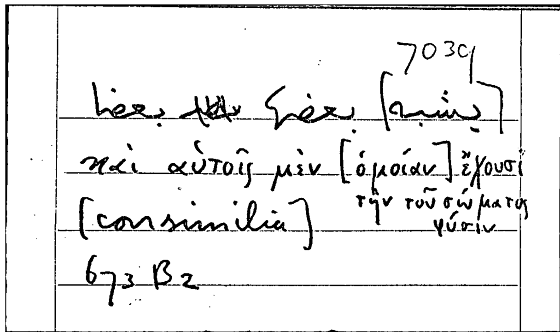 7039
καὶ αὐτοῖς μὲν [ὁμοίαν] ἔχουσι
τὴν τοῦ σώματος
φύσιν
[consimilia]
673 B2